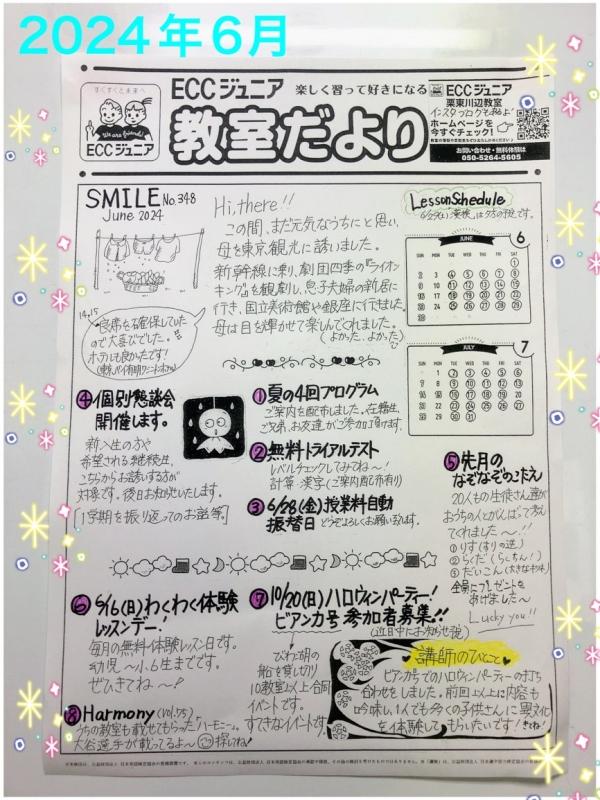 2024年6月
すくすくと未来へ
We are friends!
ECCジュニア
ECCジュニア 楽しく習って好きになる
教室だより
ECCジュニア
栗東川辺教室
ホームページを
今すぐチェック!
お問い合わせ・無料体験は
050-5264-5605
SMILE No.348
June 2024
Hi, there!!
この間、まだ元気なうちにと思い、
母を東京観光に誘いました。
新幹線に乗り、劇団四季の『ライオン
キング』を観劇し、息子夫婦の新居に
行き、国立美術館や銀座に行きました。
母は目を輝かせて楽しんでくれました。
(よかった、よかった)
良席を確保していた
ので大喜びでした。
ホテルも良かったです!
Lesson Schedule
JUNE 6
SUN MON TUE WED THU FRI SAT
1
2 3 4 5 6 7 8
9 10 11 12 13 14 15
16 17 18 19 20 21 22
23 24 25 26 27 28 29
30
JULY 7
SUN MON TUE WED THU FRI SAT
1 2 3 4 5 6
7 8 9 10 11 12 13
14 15 16 17 18 19 20
21 22 23 24 25 26 27
28 29 30 31
①夏の4回プログラム
ご案内を配布しました。在籍生、
ご兄弟、お友達がご参加頂けます。
②無料トライアルテスト
レベルチェックしてみてね～!
計算・漢字(ご案内配布有り)
③6/28(金)授業料自動
振替日 どうぞよろしくお願い致します。
④個別懇談会
開催します。
新入生の方や
希望される継続生、
こちらからお誘いする方が
対象です。後日お知らせいたします。
[1学期を振り返ってのお話等]
⑤先月の
なぞなぞのこたえ
20人もの生徒さん達が
おうちの人とがんばって考え
てくれました～!!
①りす(すりの逆)
②らくだ(らくちん!)
③だいこん
全員にプレゼントを
あげました～
Lucky you!!
⑥6/16(日)わくわく体験
レッスンデー!
毎月の無料体験レッスン日です。
幼児～小6生までです。
ぜひきてね～!
⑦10/20(日)ハロウィンパーティー!
ビアンカ号 参加者募集!!
(近日中にお知らせ致)
びわ湖の
船を貸し切り
10教室以上合同
イベントです。
すてきなイベントです。
⑧Harmony (vol.75)
うちの教室も載せてもらった「ハーモニー」。
大谷選手が載ってるよ～ 探してね!
講師のひとこと
ビアンカ号でのハロウィンパーティーの打ち
合わせをしました。前回以上に内容も
吟味し、1人でも多くの子供さんに異文化
を体験してもらいたいです! きてね!